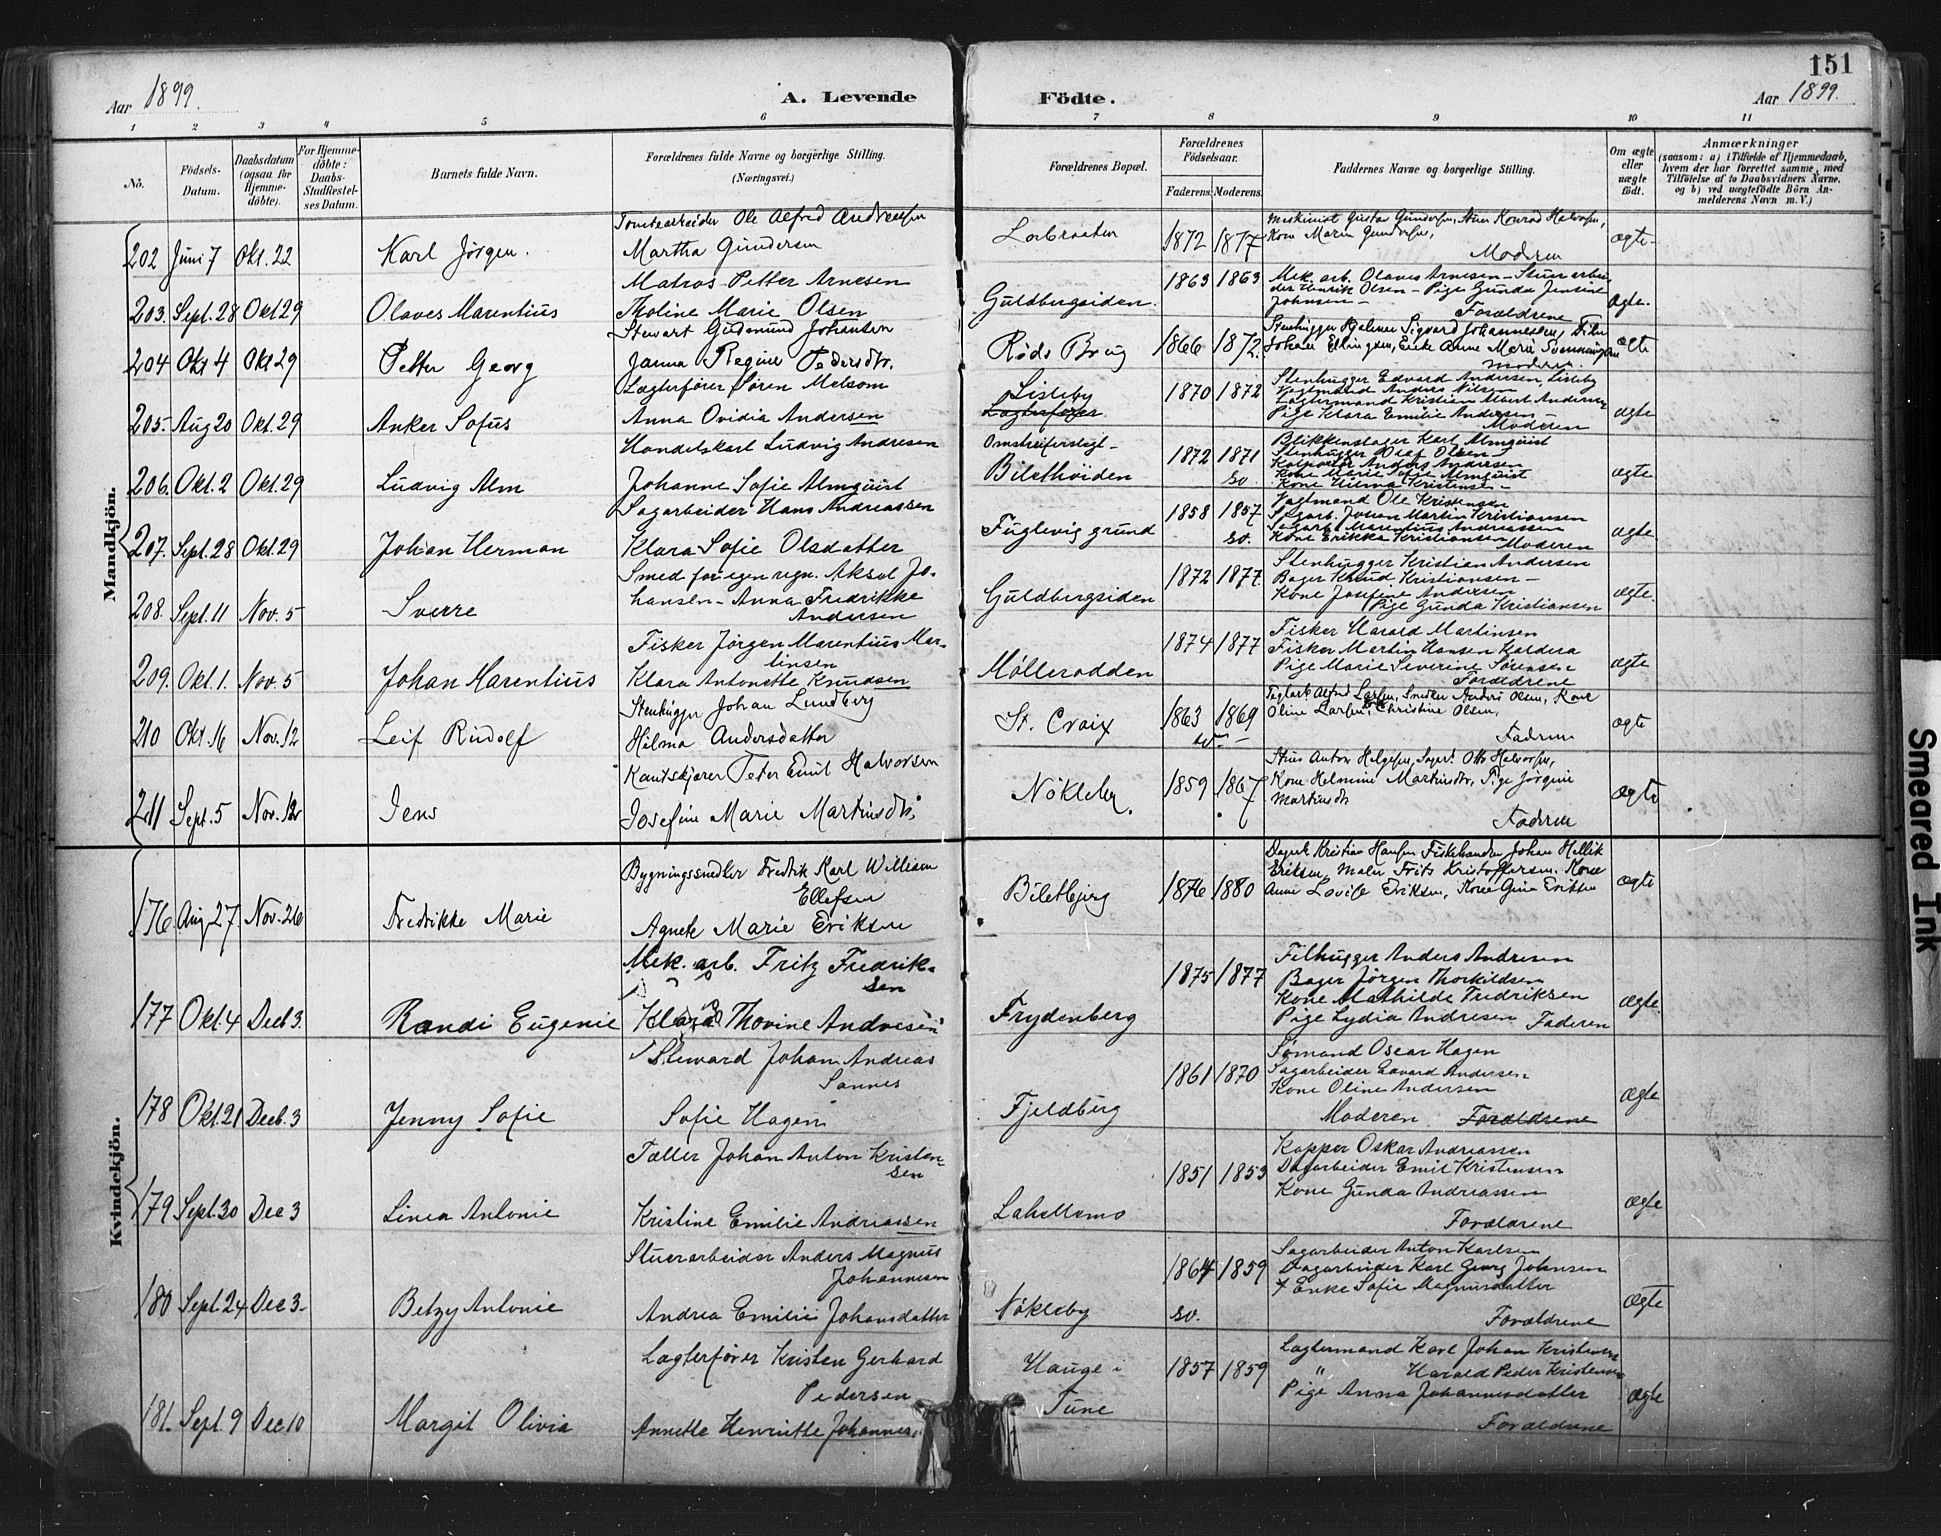 151
Aar 1899.
A. Levende Födte.
Aar 1899.
1 2 3 4 5 6 7 8 9 10 11
No.
Födsels-
Datum.
Daabsdatum
(ogsaa for
Hjemme-
döbte).
For Hjemme-
döbte:
Daabs-
Stadfæstel-
ses Datum.
Barnets fulde Navn.
Forældrenes fulde Navne og borgerlige Stilling.
(Næringsvei.)
Forældrenes Bopæl.
Forældrenes
Födselsaar.
Faderens. Moderens.
Faddernes Navne og borgerlige Stilling.
Om ægte
eller
uægte
födt.
Anmærkninger
(saasom: a) i Tilfælde af Hjemmedaab,
hvem der har forrettet samme, med
Tilföielse af to Daabsvidners Navne,
og b) ved uægtefödte Börn An-
melderens Navn m. V.)
Mandkjön.
Tomtearbeider Ole Alfred Andreassen
202 Juni 7 Okt. 22 Karl Jørgen. Martha Gundersen
1872 1877
Kone Marie Gundersen,
Moderen
ægte
Matros Petter Arnesen
203. Sept. 28 Okt 29 Olaves Marentius Tholine Marie Olsen
Guldbergsiden.
1863 1863
Mek. arb. Olaves Arnesen - Stuerarbei
der Henrik Olsen - Pige Gunda Jensine
Johnsen -
Forældrene
ægte.
Stewart Gudmund Johansen
204 Okt 4 Okt 29 Petter Georg Janna Regine Pedersdtr.
Røds Brug
1866 1872.
Moderen.
ægte
Lægterfører Søren Melsom
205- Aug 20 Okt. 29 Anker Sofus Anna Ovidia Andersen
Lisleby
Lægterfører.
1870 1872
Stenhugger Edvard Andersen, Lisleby
Vagtmand Anders Nilsen
Lægtermand Kristian Albert Andersen
Pige Klara Emilie Andersen -
Moderen
ægte
Handelskarl Ludvig Andresen
206. Okt. 2 Okt. 29 Ludvig Alm Johanne Sofie Almquist
Omstreifersligt -
Bilethöiden
1872 1871
sv.
Blikkenslager Karl Almquist
Stenhugger Olaf Olsen -
Kolportør Anders Andersen
Kone Marie Sofie Almquist
Kone Hilma Kristensen -
ægte
Sagarbeider Hans Andreassen
207. Sept. 28 Okt. 29 Johan Herman Klara Sofie Olsdatter
Fuglevig grund
1858 1857
sv.
Vagtmand Ole Kristensen
Sagarb. Johan Martin Kristiansen
Sagarb. Marentius Andreassen
Kone Erikka Kristiansen Moderen
ægte
Smed for egen regn. Aksel Jo-
208. Sept. 11 Nov. 5 Sverre hansen - Anna Fredrikke
Andersen
Guldbergsiden
1872 1877.
Stenhugger Kristian Andersen
Bager Knud Kristiansen -
Kone Josefine Andersen
Pige Gunda Kristiansen
ægte.
Fisker Jørgen Marentius Mar-
tinsen
209. Okt. 1. Nov. 5 Johan Marentius Klara Antonette Knudsen
Møllerodden
1874 1877
Fisker Harald Martinsen
Fisker Martin Hansen Kaldera
Pige Marie Severine Sørensen
Forældrene
ægte
Stenhugger Johan Lundberg
210 Okt. 16 Nov. 12 Leif Rudolf Hilma Andersdatter
St. Croix
1863 1869
sv. -
Oline Larsen, Christine Olsen,
Faderen
ægte
Peter Emil Halvorsen
211 Sept. 5 Nov. 12 Jens Josefine Marie Martinsdtr.
Nökleby.
1859 1867
Kone Helmine Martinsdtr, Pige Jørgine
Martinsdtr
Faderen
ægte
Kvindekjön.
Bygningssnedker Fredrik Karl William
Ellefsen
176. Aug. 27. Nov. 26 Fredrikke Marie Agnete Marie Eriksen
Biletbjerg
1876 1880
Dagarb. Kristian Hansen, Fiskehandler Johan Hellik
Eriksen, Maler Fritz Kristoffersen, Kone
Anne Lovise Eriksen, Kone Gine Eriksen
ægte
Mek. arb. Fritz Fredrik-
sen
177 Okt. 4 Decb 3. Randi Eugenie Klara Thovine Andresen
Frydenberg
1875 1877
Filhugger Anders Andresen
Bager Jørgen Thorkildsen
Kone Mathilde Fredriksen
Pige Lydia Andresen Faderen
ægte
Steward Johan Andreas
Sannes
178 Okt. 21 Decb. 3 Jenny Sofie Sofie Hagen
Fjeldberg
1861 1870
Sømand Oscar Hagen
Sagarbeider Edvard Andersen
Kone Oline Andersen
Moderen Forældrene
ægte
Tæller Johan Anton Kristen-
sen
179 Sept. 30 Dec 3 Linea Antonie Kristine Emilie Andreassen
Lahellemo
1851 1853
Kopper Oskar Andreassen
Dagarbeider Emil Kristensen
Kone Gunda Andreassen
Forældrene
ægte
Stuerarbeider Anders Magnus
Johannesen
180 Sept. 24 Dec 3- Betzy Antonie Andrea Emilie Johansdatter
Nökleby
1864 1859
sv.
Sagarbeider Anton Karlsen
Dagarbeider Karl Georg Johnsen
Enke Sofie Magnusdatter
Forældrene
ægte
Lægterfører Kristen Gerhard
Pedersen
181. Sept. 9 Dec 10 Margit Olivia Annette Henriette Johannes
Hauge i
Tune
1857 1859
Lægtermand Karl Johan Kristensen
" Harald Peder Kristensen
Pige Anna Johannesdatter
Forældrene
ægte
Smeared Ink